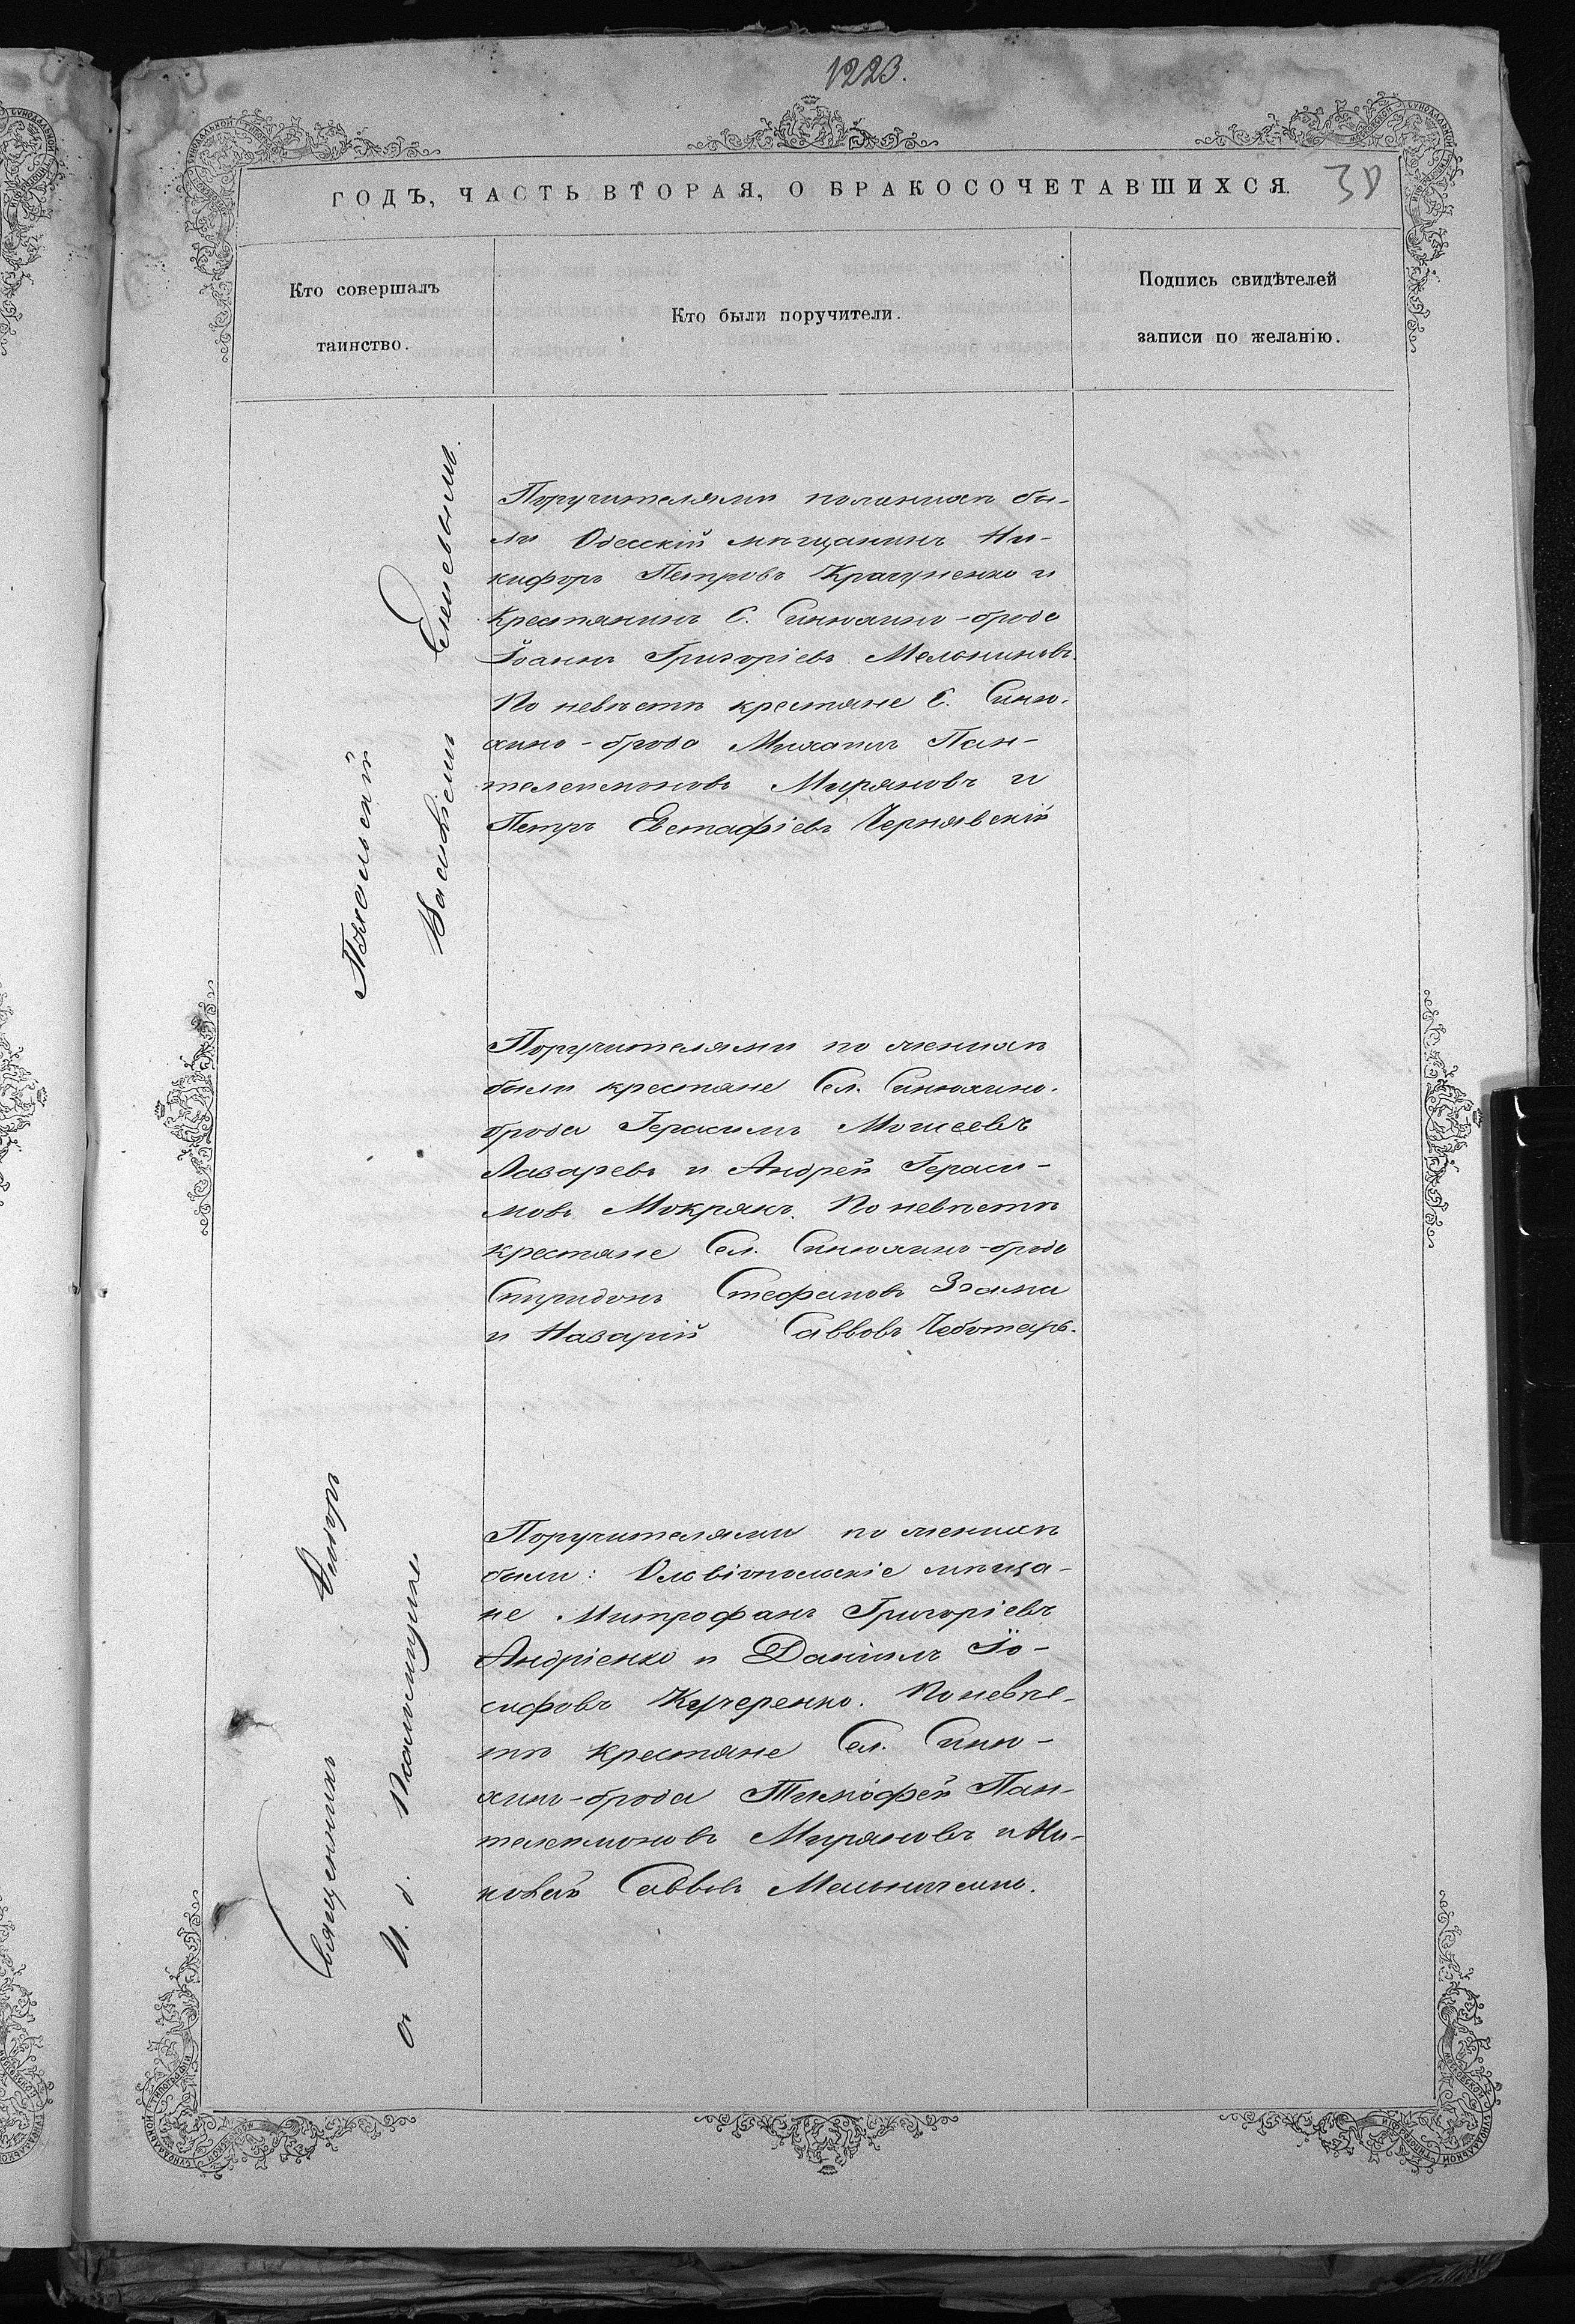 1223.
ГОДЪ, ЧАСТЬ ВТОРАЯ, О БРАКОСОЧЕТАВШИХСЯ.
Кто совершалъ
таинство.
Кто были поручители.
Подпись свидѣтелей
записи по желанію.
Священникъ Ѳеодоръ
и И. д. Псаломщика
Василіемъ
Поручителями по женихѣ бы-
ли Одесскій мѣщанинъ Ни-
кифоръ Петровъ Крачуненко и
Крестянинъ С. Синюхино-брода
Іоаннъ Григоріевъ
По невѣстѣ крестяне С. Синю-
хино-брода Михаилъ Пан-
телеимоновъ Миряновъ и
Петръ Евстафіевъ Чернявскій
Поручителями по женихѣ
были крестяне Сел. Синюхино-
брода Герасимъ Моисеевъ
Лазаревъ и Андрей Гераси-
мовъ Мокрякъ. По невѣстѣ
крестяне Сел. Синюхино-брода
Спиридонъ Стефановъ
и Назарій Саввовъ Чеботарь.
Поручителями по женихѣ
были: Ольвіопольскіе мѣща-
не Митрофанъ Григоріевъ
Андріенко и Даніилъ Іо-
сифовъ Кучеренко. По невѣ-
стѣ крестяне Сел. Синю-
хино-брода Тимофей Пан-
телеимоновъ Миряновъ и Ни-
колай Саввовъ Мельниченко.